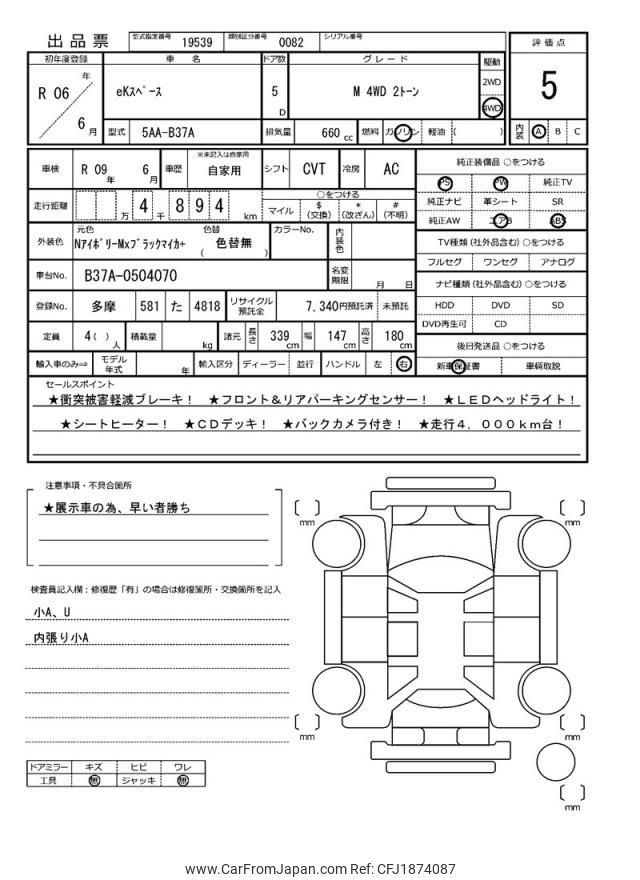 出品票
型式指定番号 19539 類別区分番号 0082 シリアル番号
初年度登録 車名 ドア数 グレード 駆動 評価点
R 06 年 6 月
eKｽﾍﾟｰｽ
5 D
M 4WD 2トーン
2WD
4WD
5
型式 5AA-B37A 排気量 660 cc 燃料 ガソリン 軽油 ( ) 内装 A B C
車検 R 09 年 6 月 車歴 ※未記入は自家用 自家用 シフト CVT 冷房 AC
純正装備品 ○をつける
PS PW 純正TV
純正ナビ 革シート SR
純正AW エアB ABS
走行距離 万 4 千 8 9 4 km
○をつける
マイル $ (交換) * (改ざん) # (不明)
外装色 元色 NｱｲﾎﾞﾘｰMxﾌﾞﾗｯｸﾏｲｶ+ 色替 ( 色替無 ) カラーNo. 内装色
TV種類 (社外品含む) ○をつける
フルセグ ワンセグ アナログ
車台No. B37A-0504070 名変期限 月 日
ナビ種類 (社外品含む) ○をつける
HDD DVD SD
DVD再生可 CD
登録No. 多摩 581 た 4818 リサイクル預託金 7,340円預託済 未預託
定員 4 ( ) 人 積載量 kg 諸元 長さ 339 cm 幅 147 cm 高さ 180 cm
後日発送品 ○をつける
新車保証書 車輌取説
輸入車のみ⇒ モデル年式 年 輸入区分 ディーラー 並行 ハンドル 左 右
セールスポイント
★衝突被害軽減ブレーキ！ ★フロント＆リアパーキングセンサー！ ★ＬＥＤヘッドライト！
★シートヒーター！ ★ＣＤデッキ！ ★バックカメラ付き！ ★走行４，０００ｋｍ台！
注意事項・不具合箇所
★展示車の為、早い者勝ち
検査員記入欄：修復歴「有」の場合は修復箇所・交換箇所を記入
小A、U
内張り小A
mm
mm
mm
mm
mm
ドアミラー キズ ヒビ ワレ
工具 無 ジャッキ 無
www.CarFromJapan.com Ref: CFJ1874087